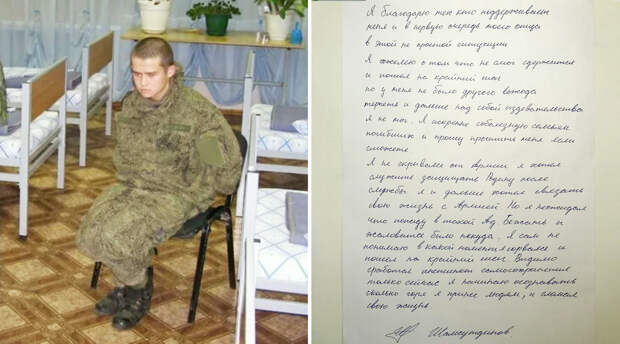 Я благодарю тех кто поддерживает
меня и в первую очередь моего отца
в этой не простой ситуации
Я жалею о том что не смог сдержатся
и пошел на крайний шаг
но у меня не было другого выхода
терпеть и дальше над собой издевательства
я не мог. Я искрене соболезную семьям
погибших и прошу простить меня если
сможете.
Я не скрывался от Армии я хотел
служить защищать Родину после
службы я и дальше хотел связать
свою жизнь с Армией Но я неожидал
что попаду в такой Ад Бежать и
жаловатся было некуда. Я сам не
понимаю в какой момент сорвался и
пошел на крайний шаг. Видимо
сработал инстинкт самосохранения
только сейчас я начинаю осознавать
сколько горя я принес людям, и сломал
свою жизнь.
Шамсутдинов